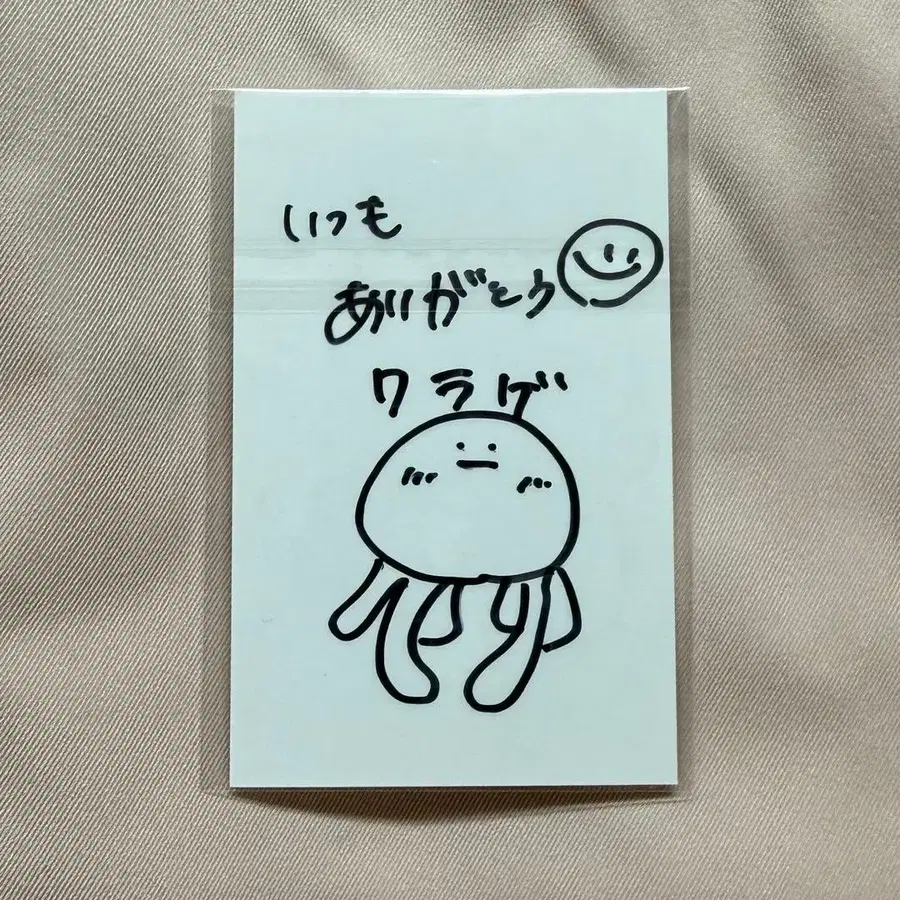 いつも
ありがとう
クラゲ